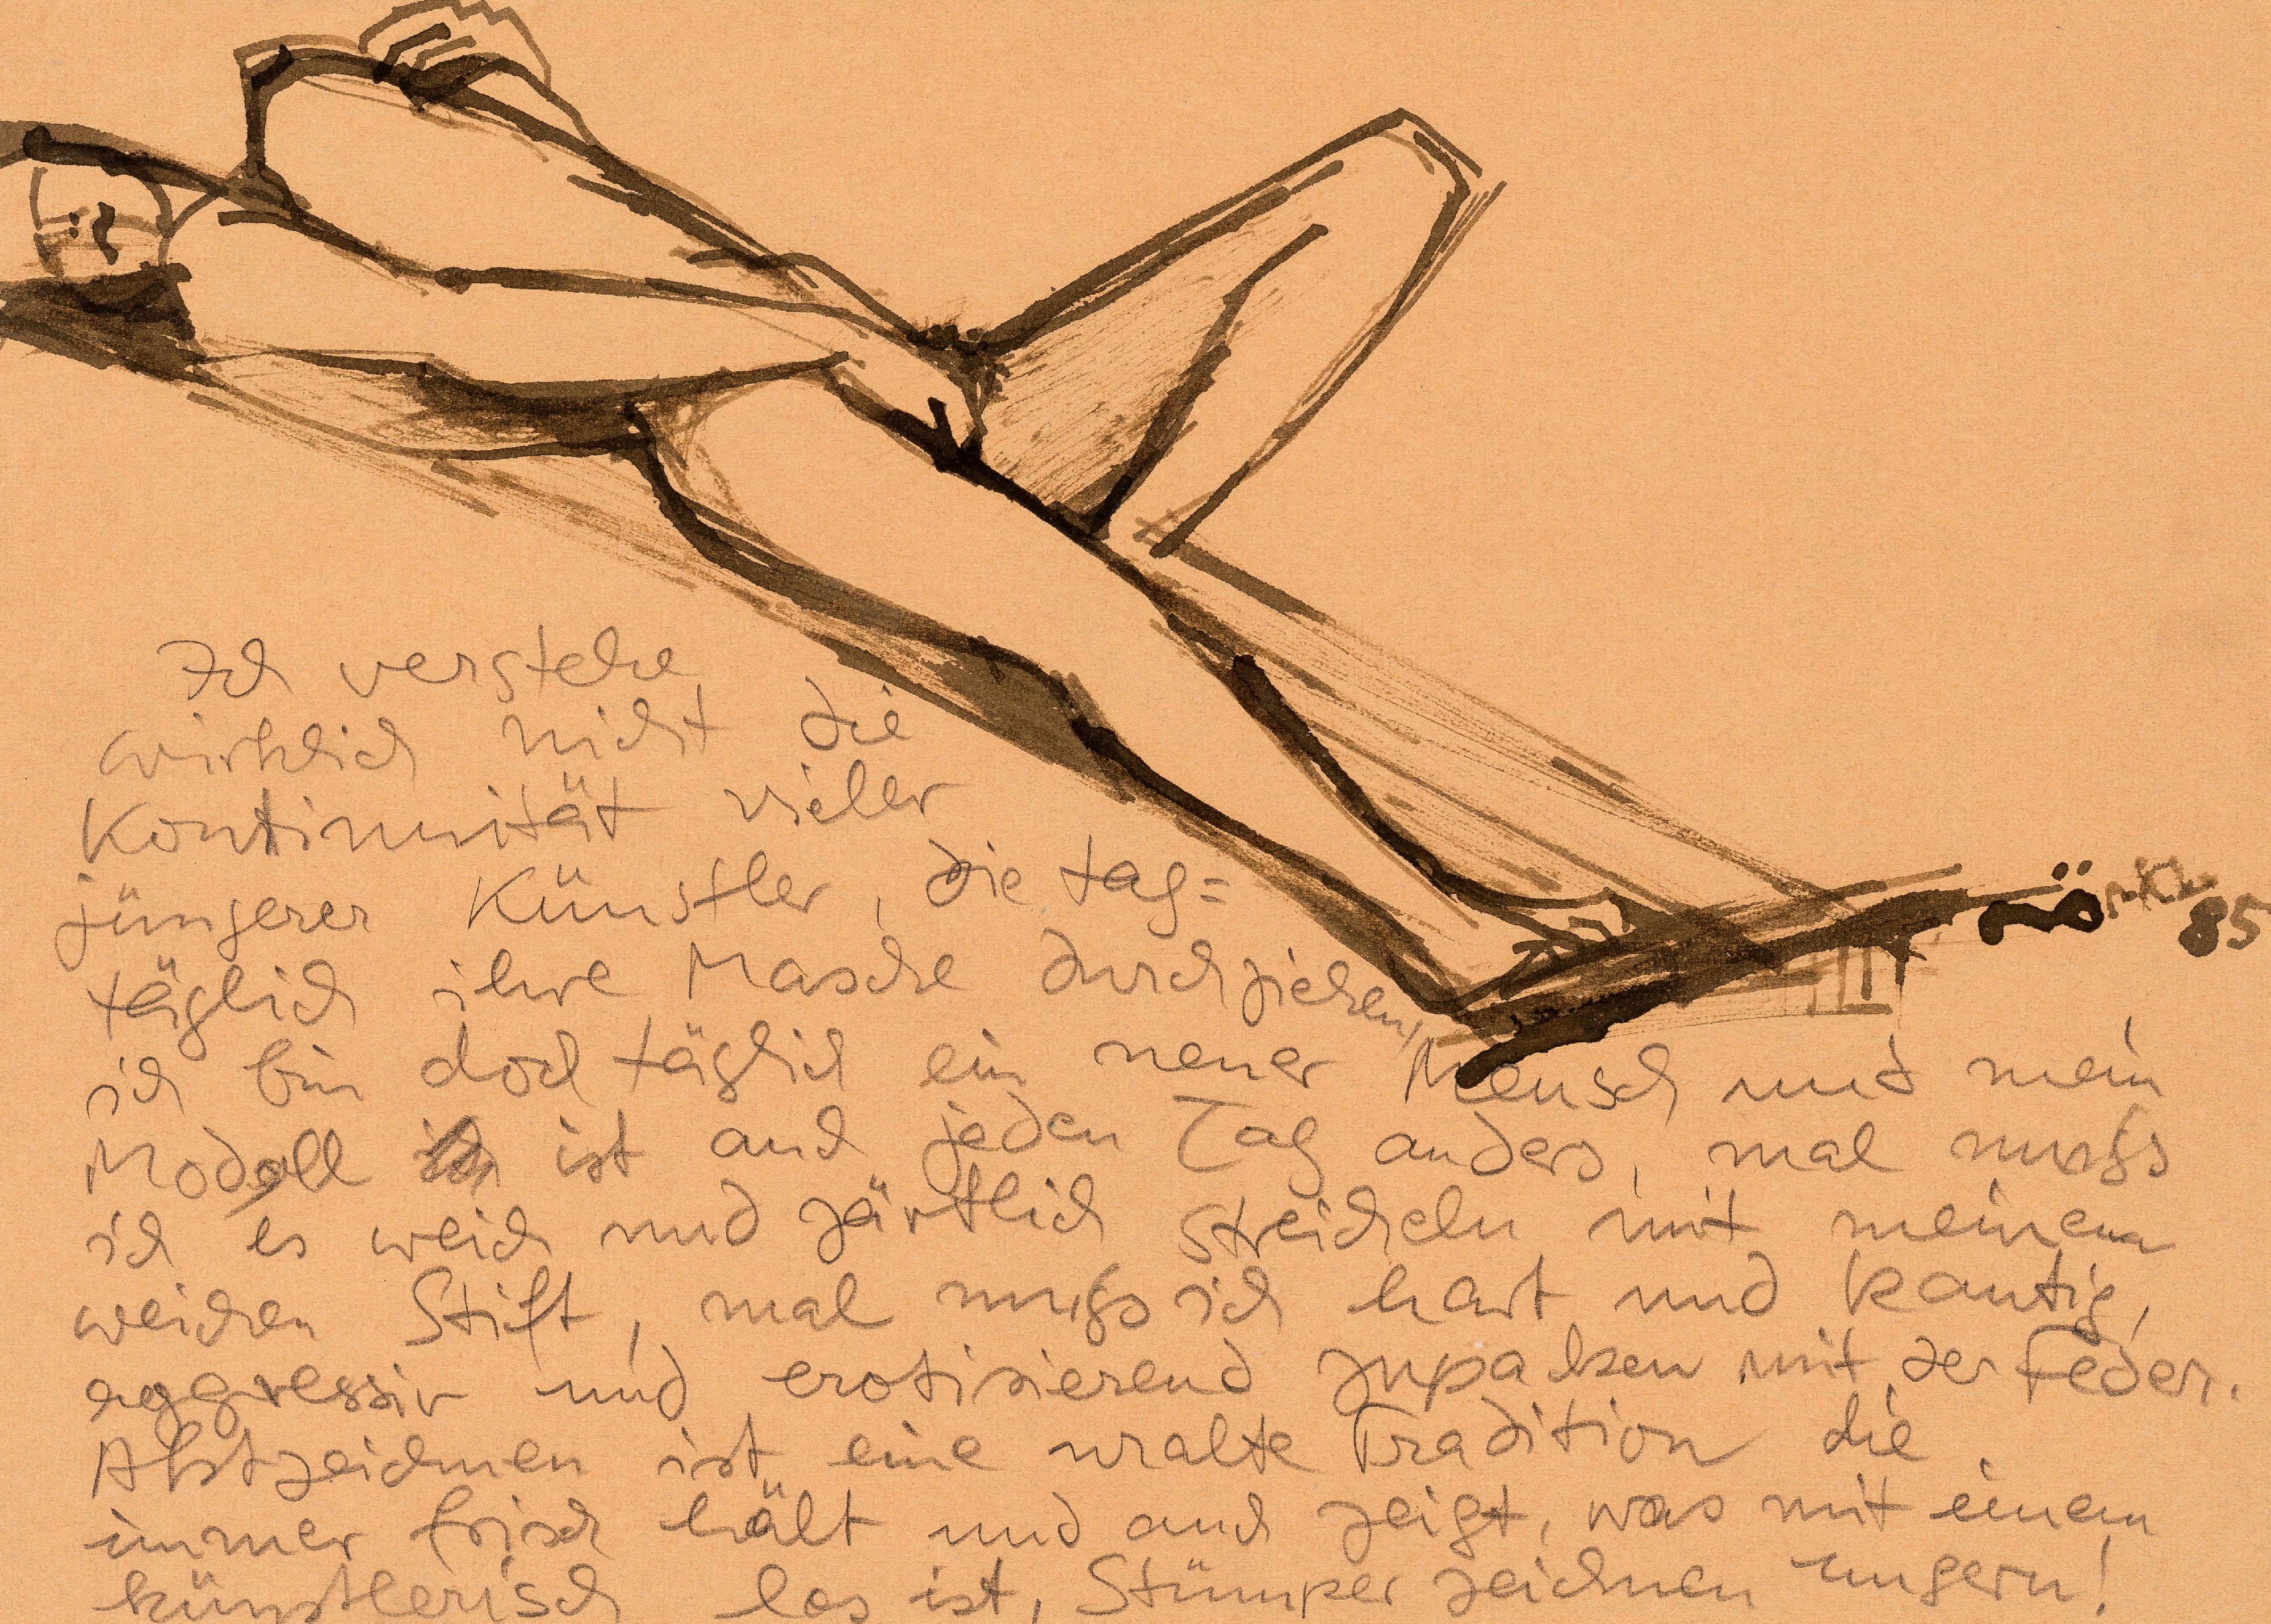 Ich verstehe
wirklich nicht die
Kontinuität vieler
jüngerer Künstler, die tag=
täglich ihre Masche durchziehen,
ich bin doch täglich ein neuer Mensch und mein
Modell ist auch jeden Tag anders, mal muß
ich es weich und zärtlich streicheln mit meinem
weichen Stift, mal muß ich hart und kantig,
aggressiv und erotisierend zupacken mit der Feder.
Aktzeichnen ist eine uralte Tradition die
immer frisch hält und auch zeigt, was mit einem
künstlerisch los ist, Stümper zeichnen ungern!
85